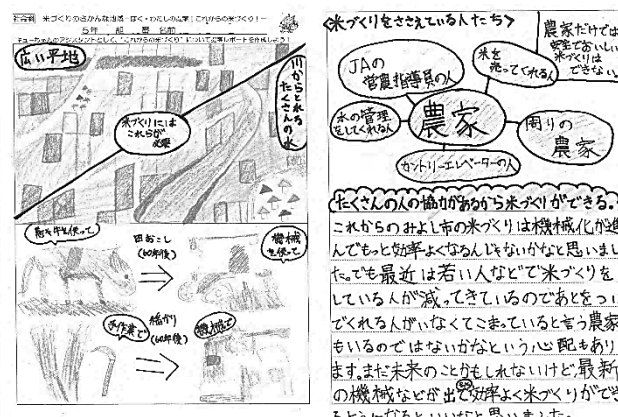 社会科 米づくりのさかんな地域 ぼく・わたしの広場！これからの米づくり！
5年 組 番 名前
広い平地
川からとれる
たくさんの水
米づくりには
これらが
必要
馬や牛を使って
田おこし
(60年後)
機械
を使って
手作業で
稲かり
(60年後)
機械で
<米づくりをささえている人たち>
農家だけでは
安全でおいしい
米づくりは
できない
JAの
営農指導員の人
米を
売ってくれる人
水の管理
をしてくれる人
農家
周りの
農家
カントリーエレベーターの人
たくさんの人の協力があるから米づくりができる。
これからのみよし市の米づくりは機械化が進
んでもっと効率よくなるんじゃないかなと思いまし
た。でも最近は若い人などで米づくりを
している人が減ってきているのであとをつい
でくれる人がいなくてこまっていると言う農家
もいるのではないかなという心配もあり
ます。まだ未来のことかもしれないけど、最新
の機械などが出て効率よく米づくりができ
るようになるといいなと思いました。